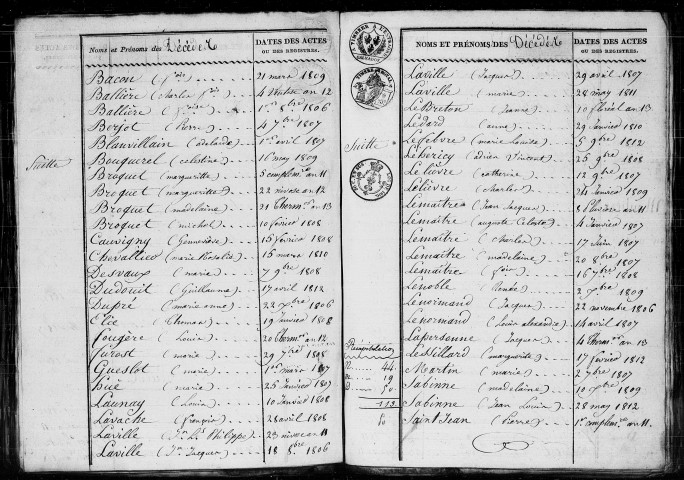 Noms et Prénoms des Décédés
DATES DES ACTES
OU DES REGISTRES.
Suitte
Bacon (fois) 21 mars 1809
Ballière (Charles fois) 4 Ventose an 12
Ballière (foise) 1er 8bre 1806
Borjot (Pierre) 4 7bre 1807
Blanvillain (adelaide) 1er avril 1807
Bouquerel (celestine) 16 may 1809
Broquet (margueritte) 5 complem. an 11
Broquet (margueritte) 22 nivose an 12
Broquet (madelaine) 21 therm. an 13
Broquet (michel) 10 fevrier 1808
Cauvigny (Genevieve) 15 fevrier 1808
Chevallier (marie Rosalie) 15 mars 1810
Desvaux (marie) 7 9bre 1808
Dudouit (Guillaume) 17 avril 1812
Dupré (marie anne) 22 xbre 1806
Elie (Thomas) 19 Janvier 1808
Fougère (Louis) 20 therm. an 12
furost (marie) 29 7bre 1808
Gueslot (marie) 1er mars 1807
hue (marie) 25 Janvier 1807
Launay (Louis) 10 Janvier 1808
Lavache (françois) 28 avril 1808
Laville (Jn Bt Philippe) 23 nivose an 11
Laville (Jn Jacques) 18 8bre 1806
NOMS ET PRÉNOMS DES Décédés
DATES DES ACTES
OU DES REGISTRES.
Suitte
Laville (Jacques) 29 avril 1807
Laville (marie) 28 may 1811
LeBreton (Jeanne) 10 floréal an 13
Ledard (anne) 29 Janvier 1810
Lefebvre (marie Louise) 5 9bre 1812
Lehericy (adrien Vincent) 25 9bre 1808
Lelièvre (catherine) 12 9bre 1807
Lelièvre (Charles) 24 Janvier 1809
Lemaitre (Jean Jacques) 8 Pluviose an 11
Lemaitre (auguste Celeste) 4 Janvier 1807
Lemaitre (Charles) 17 Juin 1807
Lemaitre (madelaine) 20 8bre 1807
Lemaitre (fois) 16 7bre 1808
Lenoble (Renée) 2 xbre 1809
Lenormand (Jacques) 22 novembre 1806
Lenormand (Louis alexandre) 14 avril 1807
Lapersonne (Jacques) 4 therm. an 13
LeTellard (margueritte) 17 fevrier 1812
Martin (marie) 2 7bre 1807
Sabinne (madelaine) 10 xbre 1809
Sabinne (Jean Louis) 28 may 1812
Saint Jean (Pierre) 1er complem. an 11
Récapitulation
N. 44
M. 19
D. 50
113